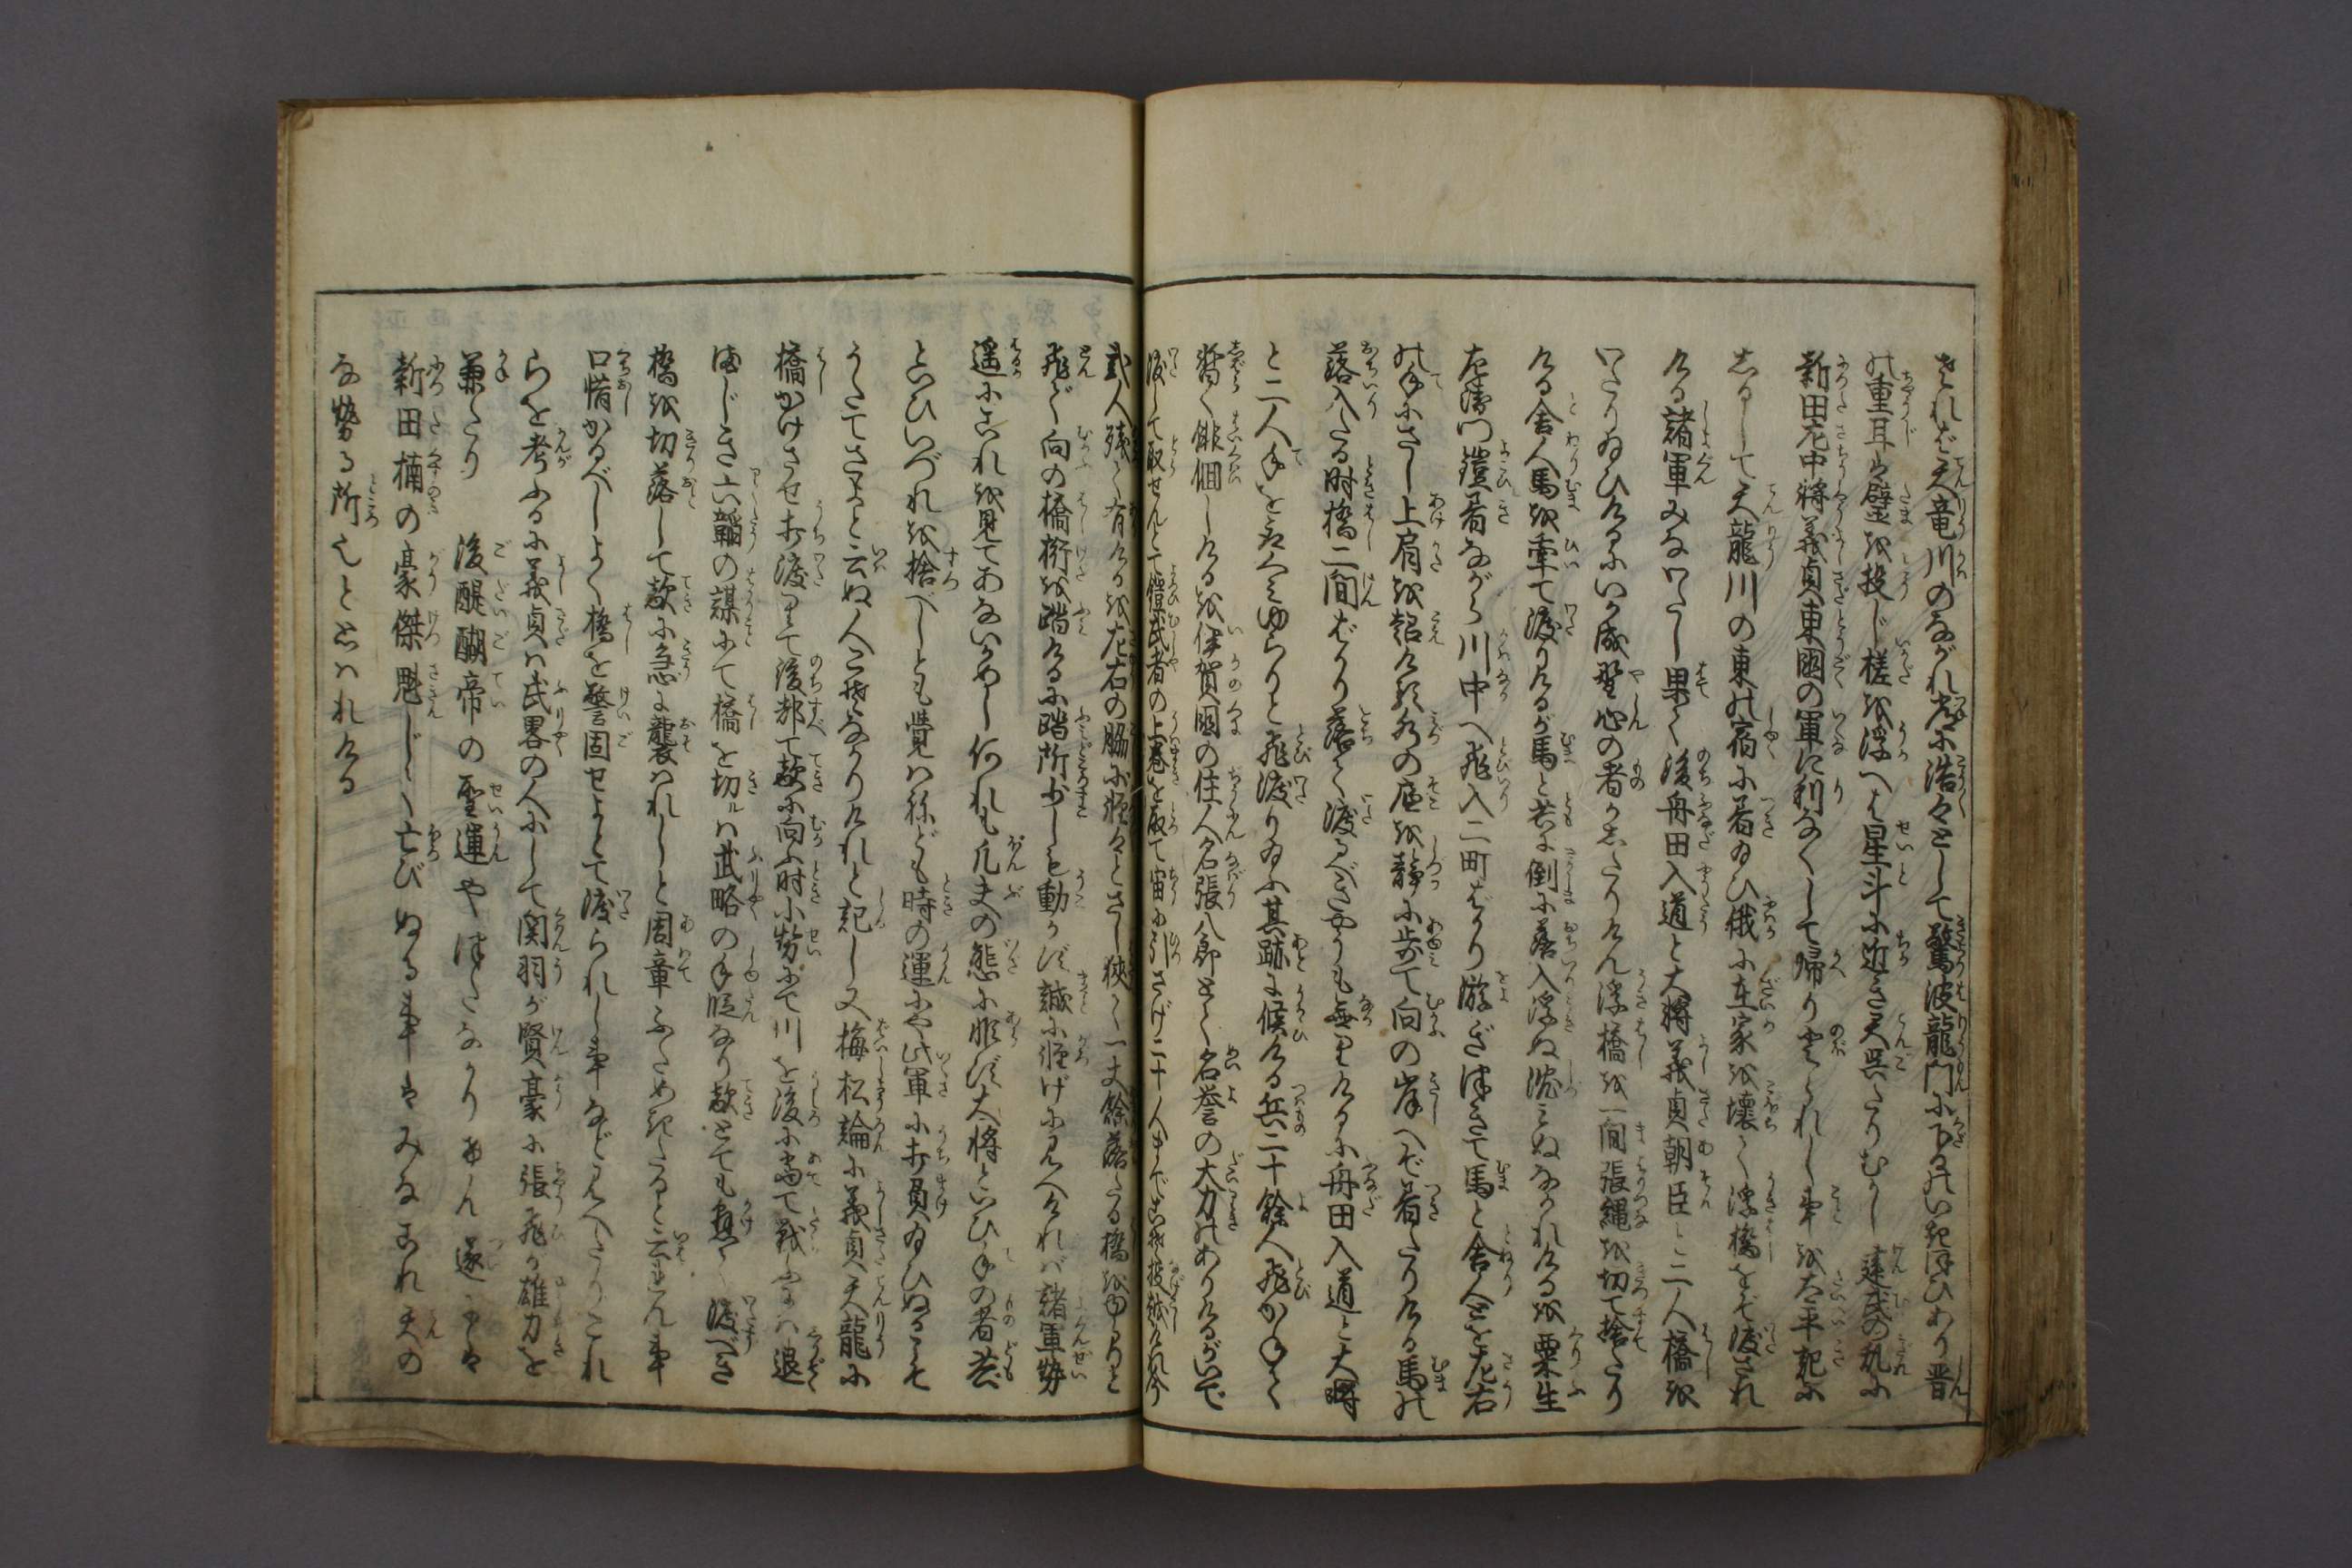 されば天竜川のながれ常に浩々として驚波龍門に下るのいきほひあり晋
の重耳は璧を投じ槎を浮へは星斗に近き天呉たりむかし建武の乱に
新田左中将義貞東国の軍に利なくして帰り登られし事を太平記に
しるして天龍川の東の宿に着ゐひ俄に在家を壊て浮橋をぞ渡され
ける諸軍みなわたし果て後舟田入道と大将義貞朝臣と二人橋を
わたりゐひけるにいか成野心の者かしたりけん浮橋を一間張縄を切て捨たり
ける舎人馬を牽て渡りけるが馬と共に倒に落入浮ぬ沈ぬながれけるを栗生
左衛門鎧着ながら川中へ飛入二町ばかり游ぎ付て馬と舎人とを左右
の手にさし上肩を超ける水の底を静に歩て向の岸へぞ着たりける馬の
落入たる時橋二間ばかり落て渡るべきやうも無りけるに舟田入道と大将
と二人手を取くみゆらりと飛渡りゐふ其跡に候ける兵二十餘人飛かねて
暫く徘徊しけるを伊賀国の住人名張八郎とて名誉の大力のありけるがいで
渡して取せんとて鎧武者の上巻を取て宙に引さげ二十人までこそ投越けれ今
弐人残て有けるを左右の脇に軽々とさし狭て一丈餘落たる橋をゆらりと
飛で向の橋桁を踏けるに踏所少しも動かず誠に軽げに見へければ諸軍勢
遥にこれを見てあないかめし何れも凡夫の態に非ず大将といひ手の者共
といひいづれを捨べしとも覚ハねども時の運にや此軍に打負ゐひぬるこそ
うたてさよと云ぬ人こそなかりけれと記し又梅松論に義貞天龍に
橋かけさせ打渡りて後都て敵に向ふ時小勢にて川を後に当て戦ふ時ハ退
まじき六韜の謀にて橋を切ルハ武略の手段なり敵とても懸て渡べき
橋を切落して敵に急に襲ハれしと周章ふためきたると云れん事
口惜かるべしよく橋を警固せよとて渡られし事など見へたりこれ
らを考ふるに義貞ハ武略の人にして関羽が賢豪に張飛が雄力を
兼たり　後醍醐帝の聖運や つたなかりけん遂には
新田楠の豪傑魁じて亡びぬる事はみなこれ天の
なせる所也としハれける